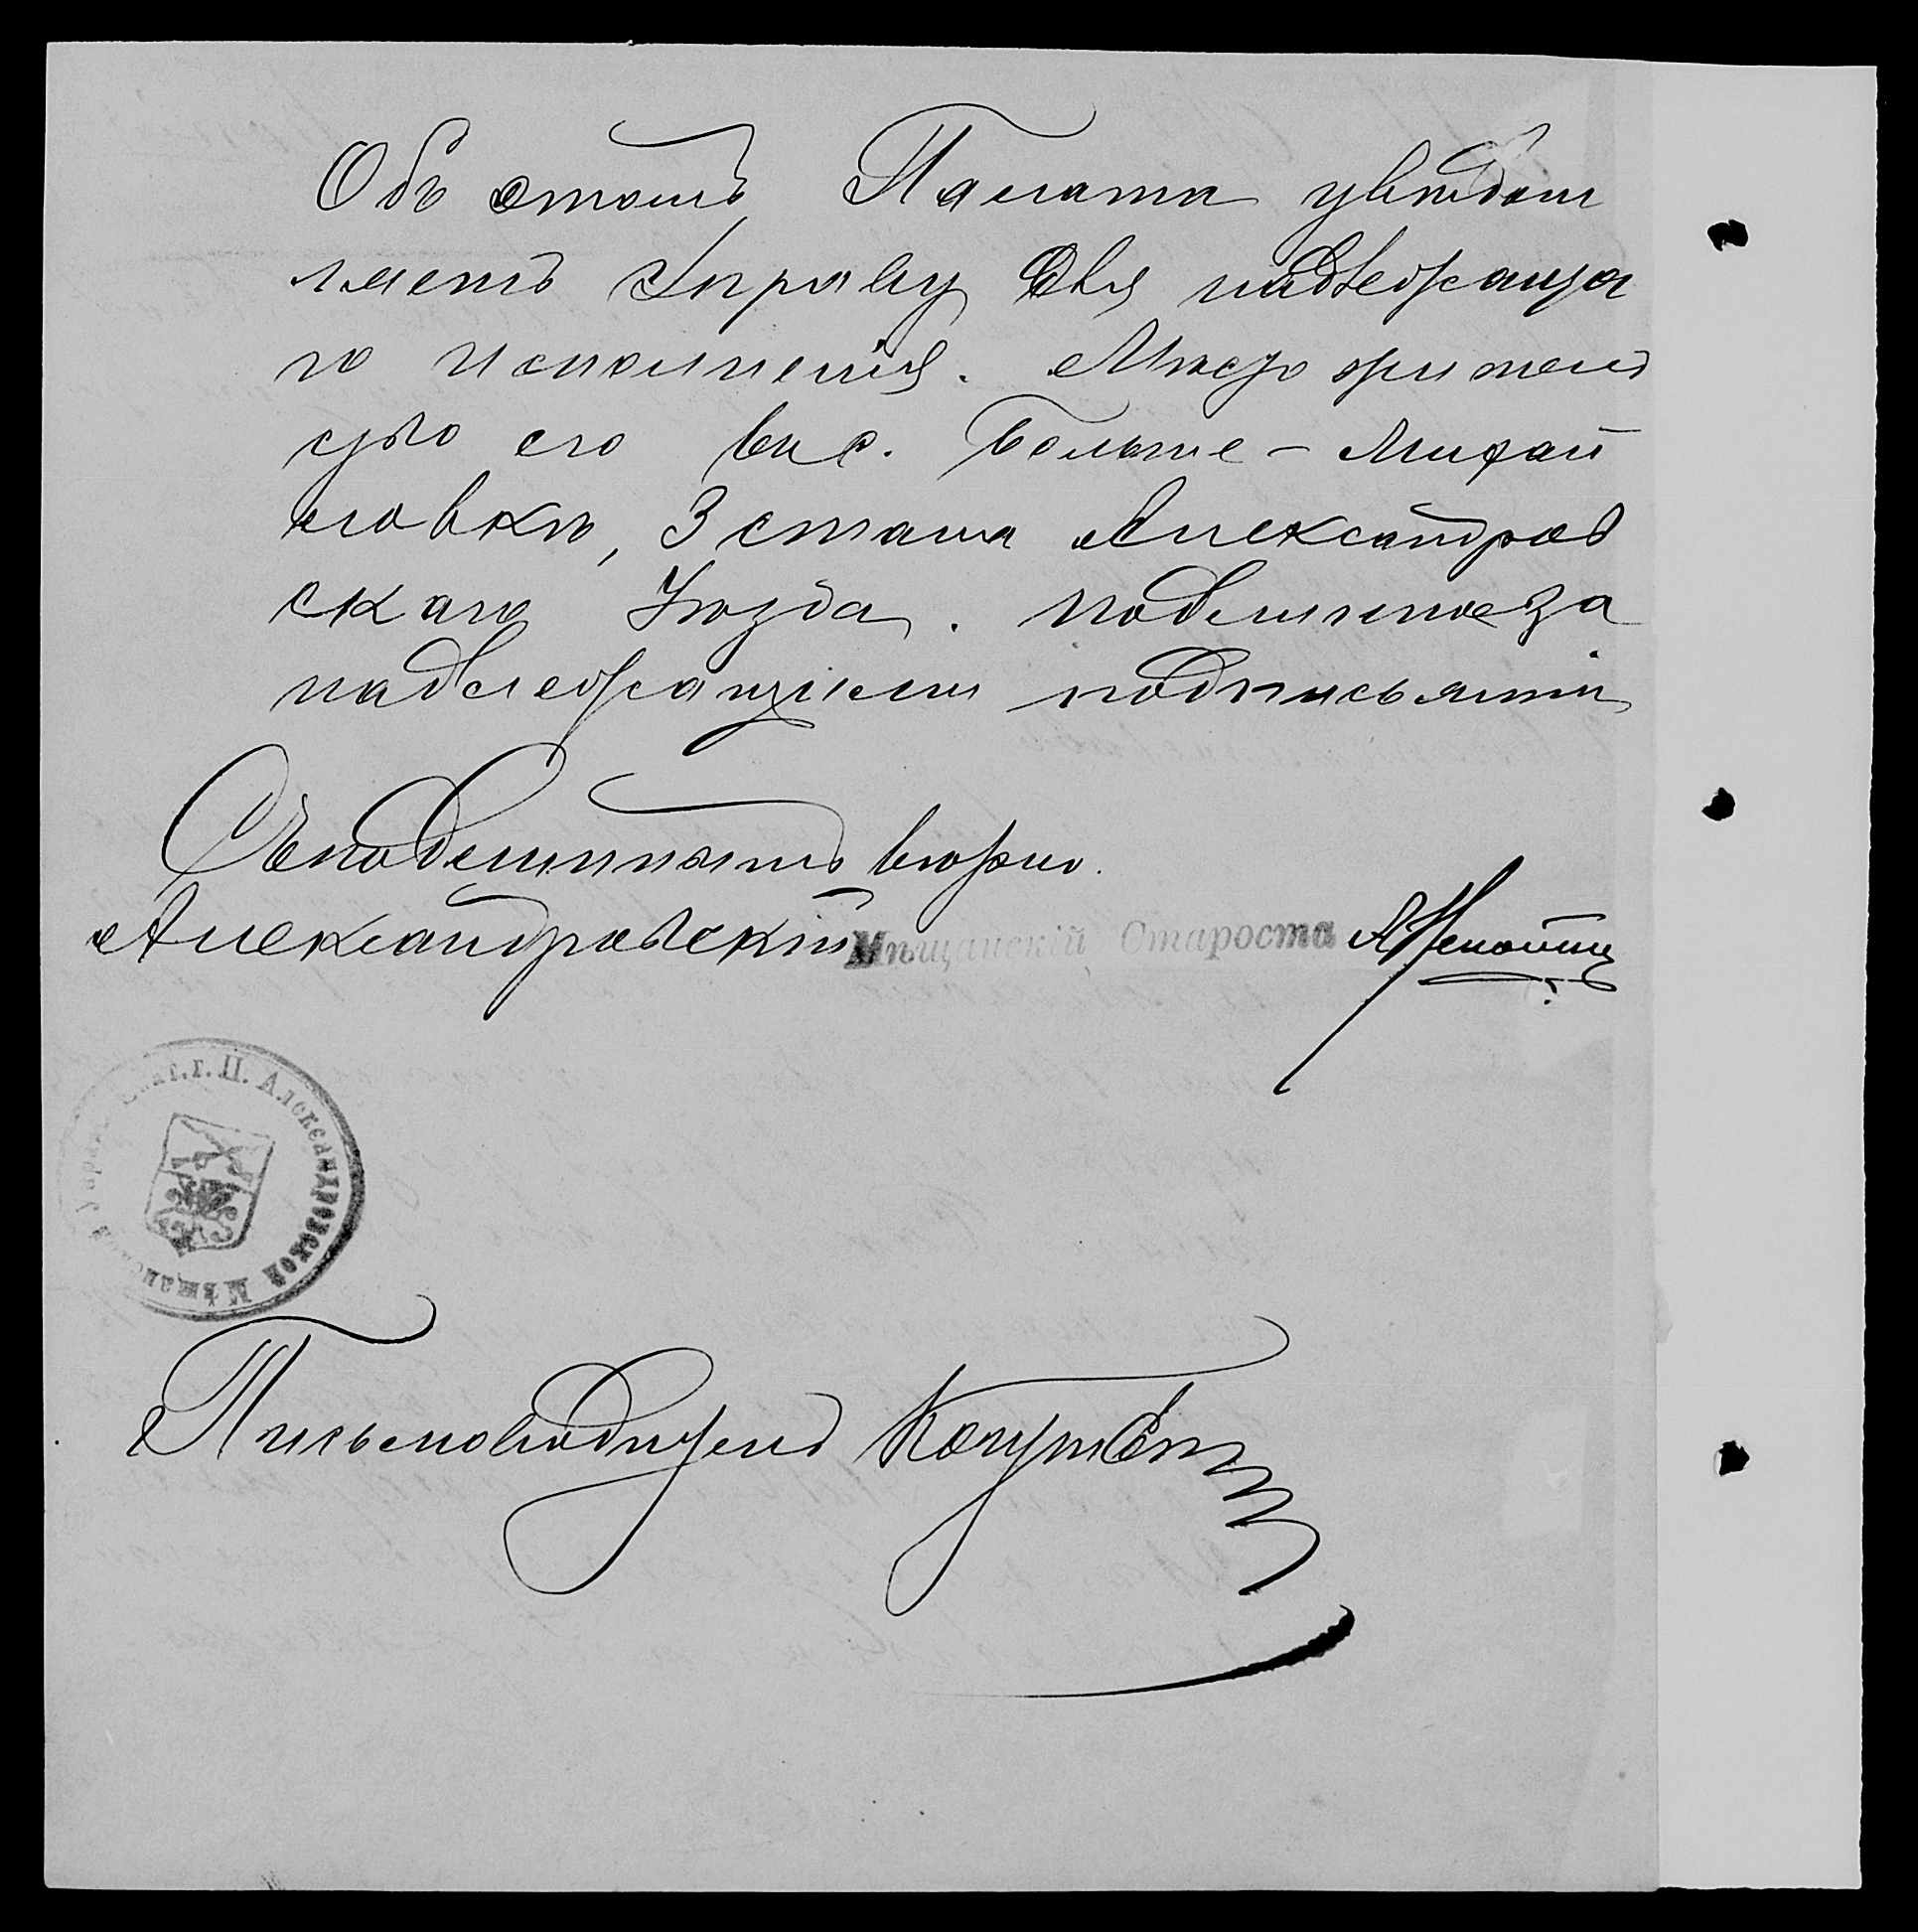 Объ этомъ Палата увѣдом
ляетъ Управу для надлежаща
го исполненія. Мѣсто житель
ство его въ с. Больше-Михай
ловкѣ, 3 стана Александров
скаго Уѣзда. Подлинное за
надлежащими подписями
Съ подлиннымъ вѣрно.
Александровскій Мѣщанскій Староста
г. П. Александровской Мѣщанской
Письмоводитель